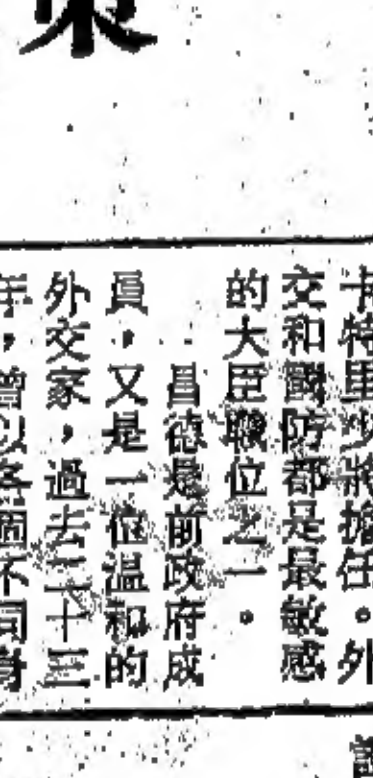 策
卡特里少將擔任。外
交和國防都是最敏感
的大臣職位之一。
昌德是前政府成
員，又是一位温和的
外交家，過去二十三
年，曾以各個不同身